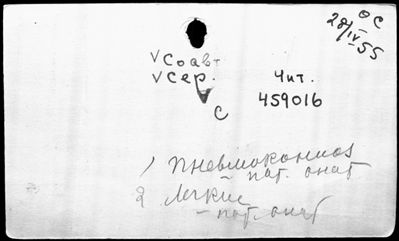 ФС
28/IV 55
√ Соавт
√ Сер.
Чит.
С
459016
1) Пневмокониоз
– пат. анат
2 Легкие
– пат. анат